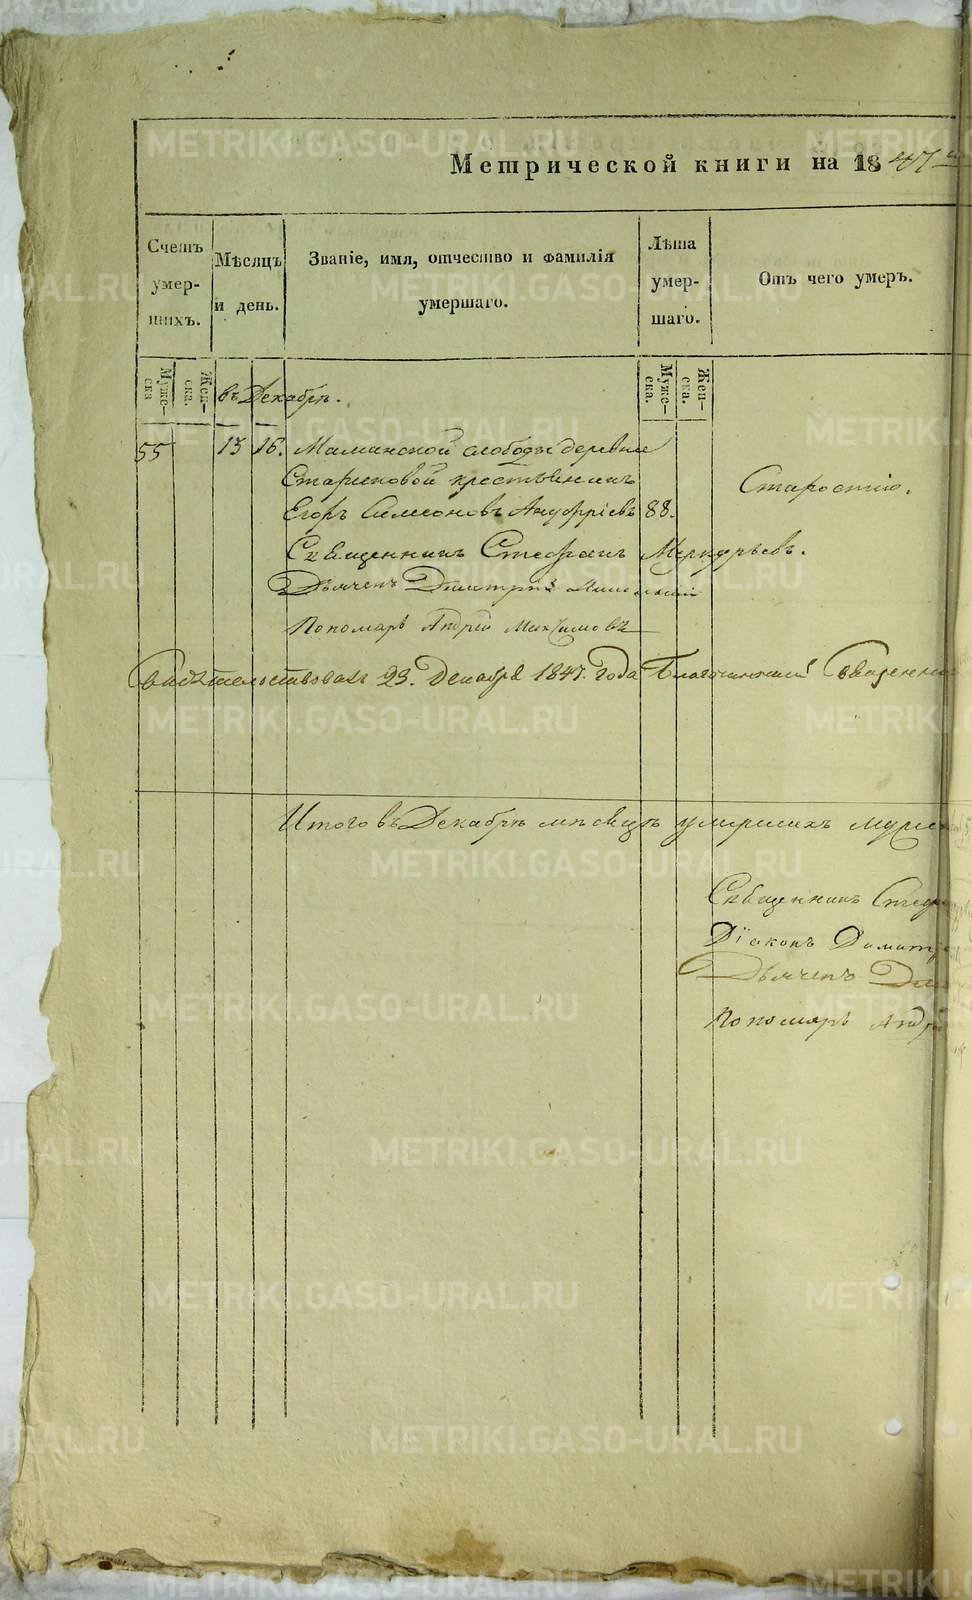 Метрической книги на 1847
Счетъ умер-шихъ.
Мѣсяцъ и день.
Званіе, имя, отчество и фамилія умершаго.
Лѣта умер-шаго.
Отъ чего умеръ.
Муже-ска
Жен-ска.
въ Декабрѣ.
Муже-ска.
Жен-ска.
55 13 16. Маминской слободы деревни
Стариковой крестьянинъ Старостію.
Егоръ Симеоновъ Ануфріевъ 88.
Священникъ Стефанъ Меркурьевъ.
Дьячекъ Димитрій
Пономарь Андрей Максимовъ
Свидѣтельствовалъ 23. Декабря 1847. Года Благочинный Священник
Итого въ Декабрѣ мѣсяцѣ умершихъ муже
Священникъ Стеф
Діаконъ Димитр
Дьячекъ Дим
Пономарь Андр
METRIKI.GASO-URAL.RU